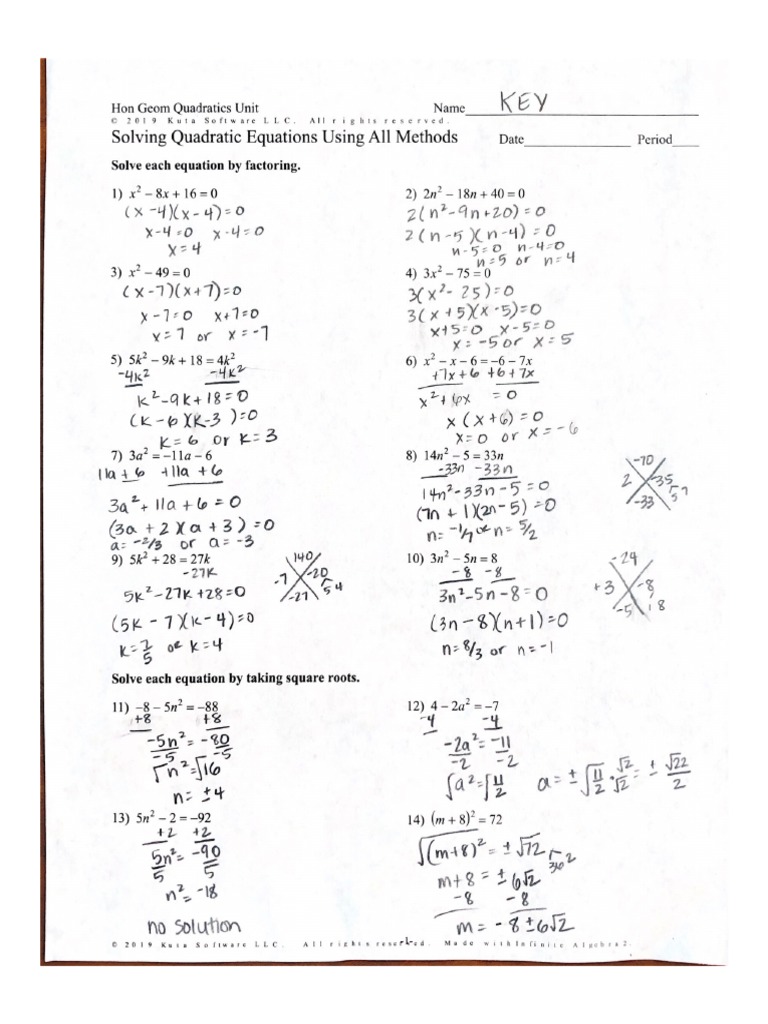 Hon Geom Quadratics Unit
Name KEY
© 2019 Kuta Software LLC. All rights reserved.
Solving Quadratic Equations Using All Methods
Date Period
Solve each equation by factoring.
1) x² − 8x + 16 = 0
(x -4)(x - 4) = 0
x-4 = 0 x-4 = 0
x = 4
2) 2n² − 18n + 40 = 0
2(n² -9n +20) = 0
2(n-5)(n-4) = 0
n-5=0 n-4=0
n=5 or n=4
3) x² − 49 = 0
(x-7)(x+7)=0
x-7=0 x+7=0
x=7 or x=-7
4) 3x² − 75 = 0
3(x² - 25)=0
3(x+5)(x-5)=0
x+5=0 x-5=0
x= -5 or x = 5
5) 5k² − 9k + 18 = 4k²
-4k² -4k²
k² -9k + 18 = 0
(k-6)(k-3)=0
k= 6 or k= 3
6) x² − x − 6 = −6 − 7x
+7x +6 +6 +7x
x² + 6x = 0
x (x+6) = 0
x=0 or x = -6
7) 3a² = −11a − 6
11a + 6 +11a + 6
3a² + 11a + 6 = 0
(3a + 2)(a + 3) = 0
a= -2/3 or a= -3
8) 14n² − 5 = 33n
-33n -33n
14n² -33n - 5 = 0
(7n + 1)(2n - 5) = 0
n= -1/7 or n= 5/2
-70
2 -35
-33 5 7
9) 5k² + 28 = 27k
-27k
5k² -27k +28 = 0
(5k - 7)(k-4)=0
k= 7/5 or k=4
140
-7 -20
-27 5 4
10) 3n² − 5n = 8
-8 -8
3n² -5n -8 = 0
(3n-8)(n+1)=0
n= 8/3 or n= -1
-24
+3 -8
-5 1 8
Solve each equation by taking square roots.
11) −8 − 5n² = −88
+8 +8
-5n² = -80
-5 -5
√n² = √16
n= ±4
12) 4 − 2a² = −7
-4 -4
-2a² = -11
-2 -2
√a² = √11/2 a = ±√11/2 · √2/√2 = ± √22/2
13) 5n² − 2 = −92
+2 +2
5n² = -90
5 5
n² = -18
no solution
14) (m + 8)² = 72
√(m+8)² = ±√72
36 2
m+8 = ± 6√2
-8 -8
m= -8 ± 6√2
© 2019 Kuta Software LLC. All rights reserved. Made with Infinite Algebra 2.